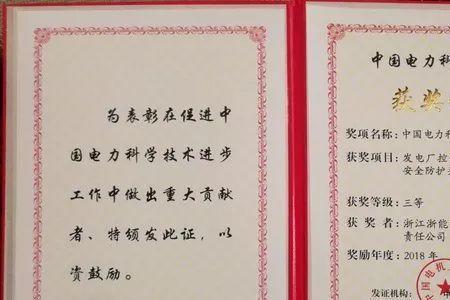 为表彰在促进中
国电力科学技术进步
工作中做出重大贡献
者、特颁发此证，以
资鼓励。
中国电力科
获奖
奖项名称：中国电力科
获奖项目：发电厂控
安全防护
获奖等级：三等
获奖者：浙江浙能
责任公司
奖励年度：2018
发证机构：
国电机